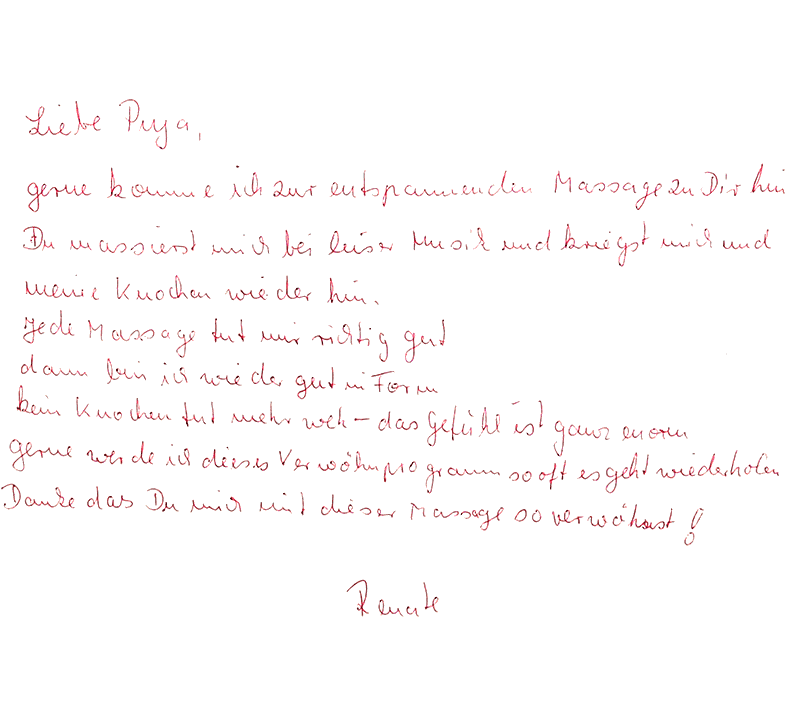 Liebe Puya,
gerne komme ich zur entspannenden Massage zu Dir hin
Du massierst mich bei leiser Musik und kriegst mich und
meine Knochen wieder hin.
Jede Massage tut mir richtig gut
dann bin ich wieder gut in Form
kein Knochen tut mehr weh - das Gefühl ist ganz enorm
gerne werde ich dieses Verwöhnprogramm so oft es geht wiederholen
Danke das Du mich mit dieser Massage so verwöhnst!
Renate